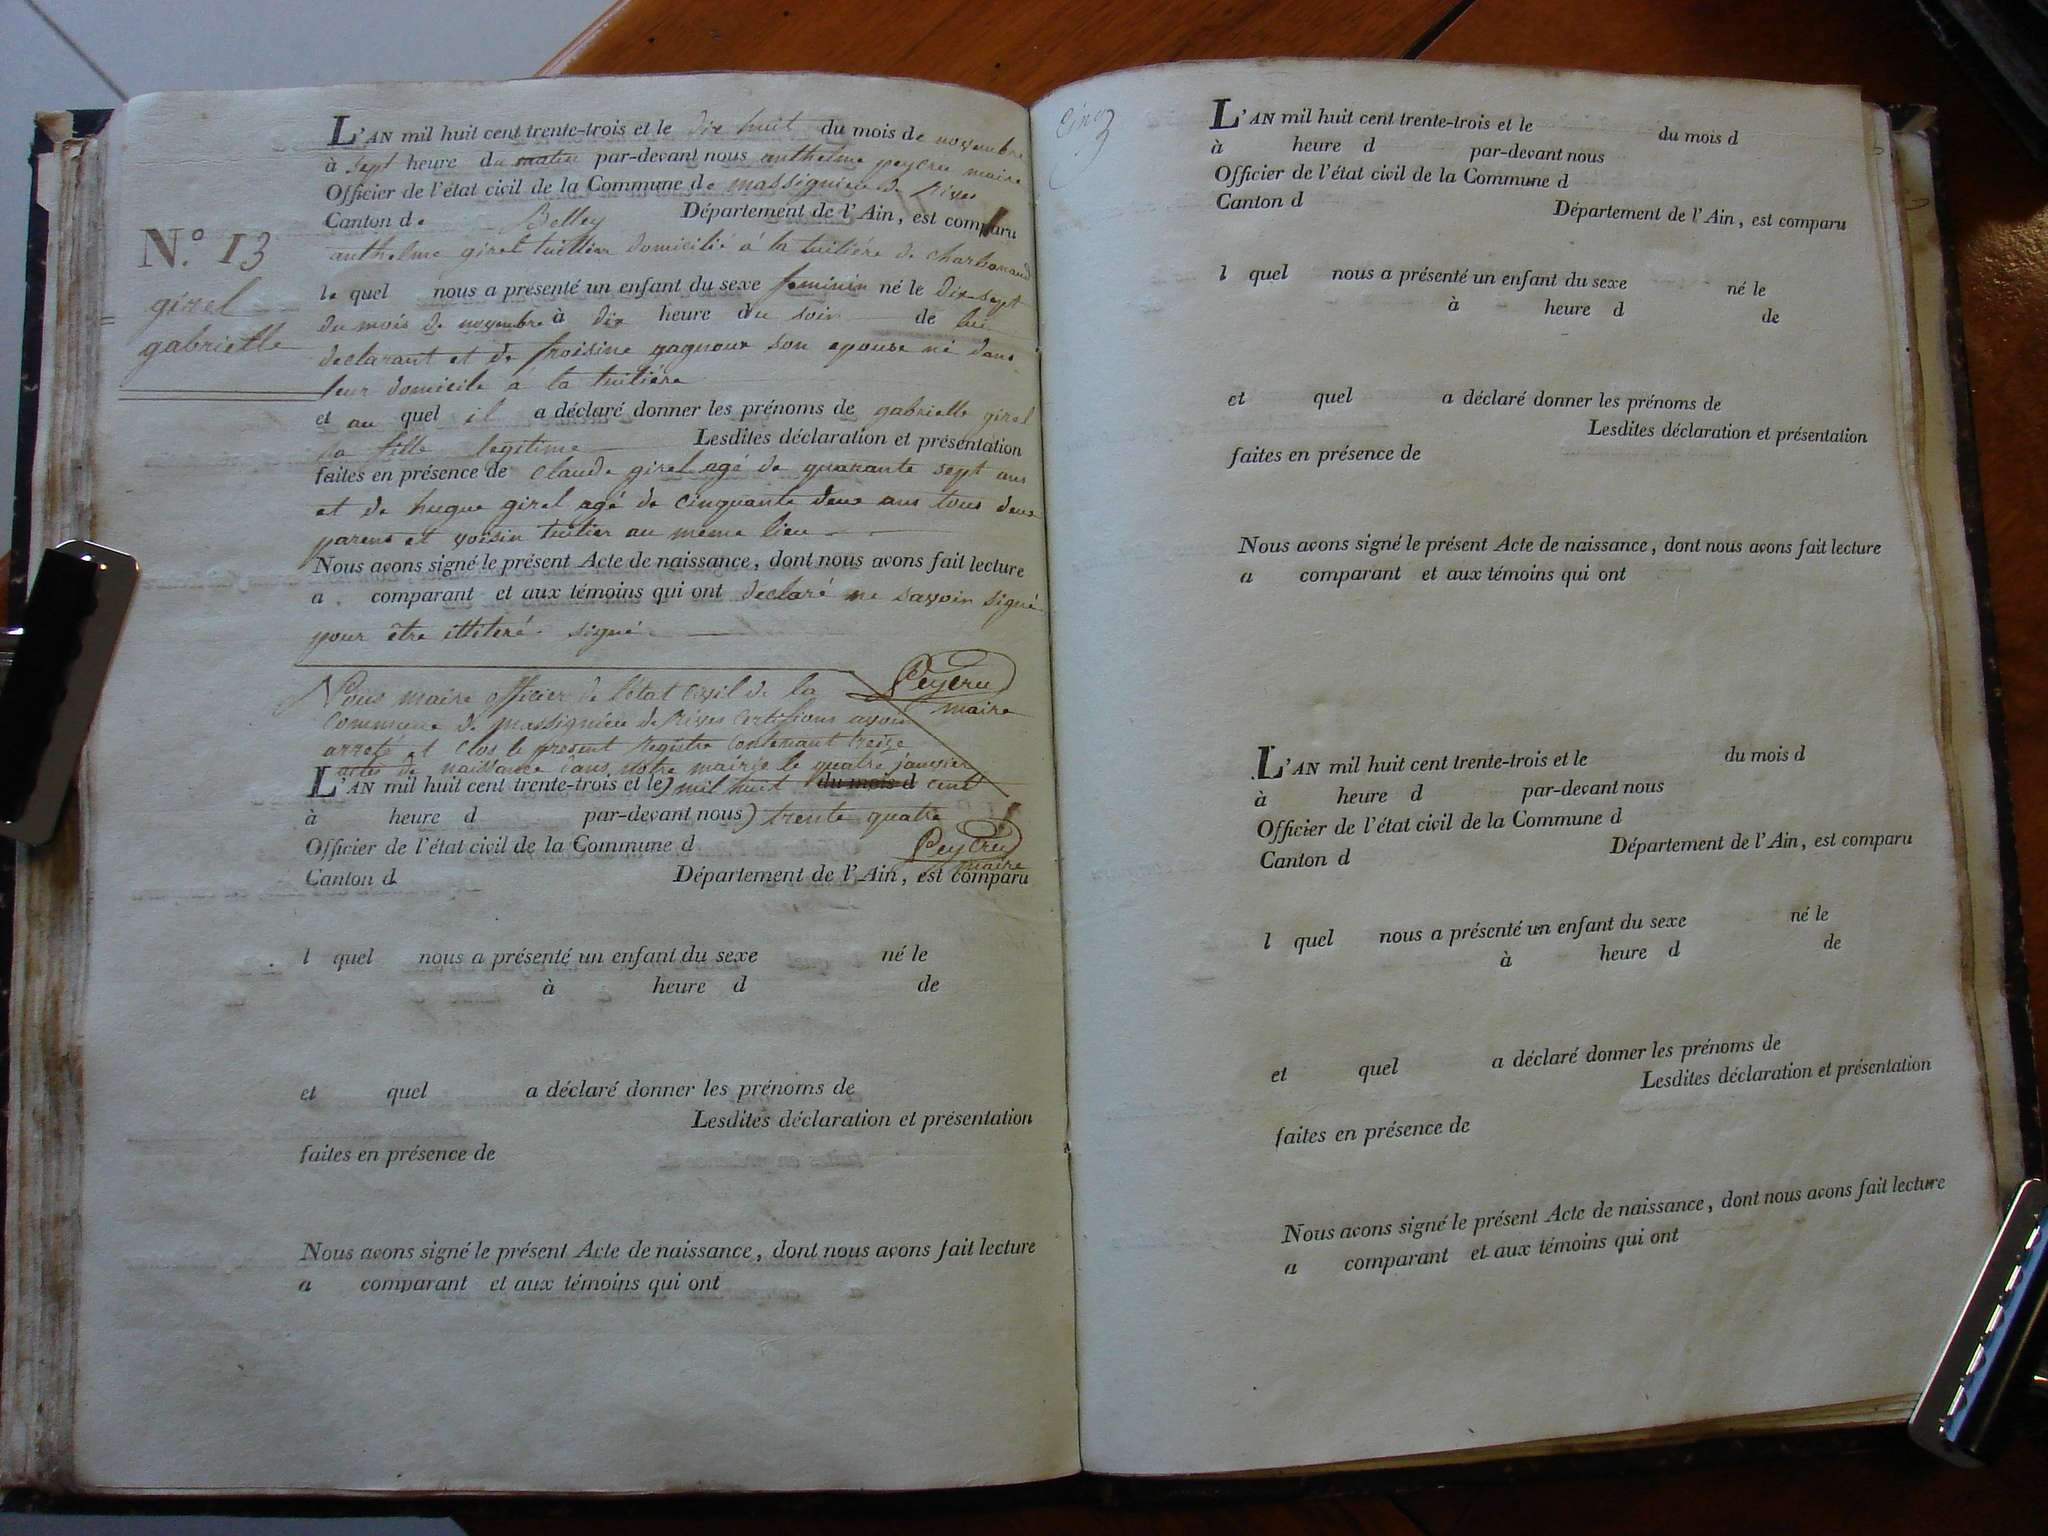 L'AN mil huit cent trente-trois et le dix huit du mois de novembre
à sept heure du matin par-devant nous anthelme peycru maire
Officier de l'état civil de la Commune de massignieu de Rives
Canton de Belley Département de l'Ain, est comparu
anthelme girel tuillier domicilié à la tuitiére de charbonaud
N.º 13
girel
gabrielle
le quel nous a présenté un enfant du sexe feminin né le Dix-sept
du mois de novembre à dix heure du soir de lui
declarant et de froisine gagnoux son epouse né dans
leur domicile à la tuitiére
et au quel il a déclaré donner les prénoms de gabrielle girel
sa fille legitime Lesdites déclaration et présentation
faites en présence de claude girel agé de quarante sept ans
et de hugue girel agé de cinquante deux ans tous deux
parens et voisin tuitier au même lieu
Nous avons signé le présent Acte de naissance, dont nous avons fait lecture
a comparant et aux témoins qui ont declaré ne savoir signé
pour être illiteré signé
Peycru
maire
Nous maire officier de l'état civil de la
commune de massignieu de Rives certifions avoir
arreté et clos le present registre contenant treize
actes de naissance dans notre mairie le quatre janvier
L'AN mil huit cent trente-trois et le) mil huit du mois d cent
à heure d par-devant nous) trente quatre
Officier de l'état civil de la Commune d Peycru
maire
Canton d Département de l'Ain, est comparu
l quel nous a présenté un enfant du sexe né le
à heure d de
et quel a déclaré donner les prénoms de
Lesdites déclaration et présentation
faites en présence de
Nous avons signé le présent Acte de naissance, dont nous avons fait lecture
a comparant et aux témoins qui ont
L'AN mil huit cent trente-trois et le du mois d
à heure d par-devant nous
Officier de l'état civil de la Commune d
Canton d Département de l'Ain, est comparu
l quel nous a présenté un enfant du sexe né le
à heure d de
et quel a déclaré donner les prénoms de
Lesdites déclaration et présentation
faites en présence de
Nous avons signé le présent Acte de naissance, dont nous avons fait lecture
a comparant et aux témoins qui ont
L'AN mil huit cent trente-trois et le du mois d
à heure d par-devant nous
Officier de l'état civil de la Commune d
Canton d Département de l'Ain, est comparu
l quel nous a présenté un enfant du sexe né le
à heure d de
et quel a déclaré donner les prénoms de
Lesdites déclaration et présentation
faites en présence de
Nous avons signé le présent Acte de naissance, dont nous avons fait lecture
a comparant et aux témoins qui ont